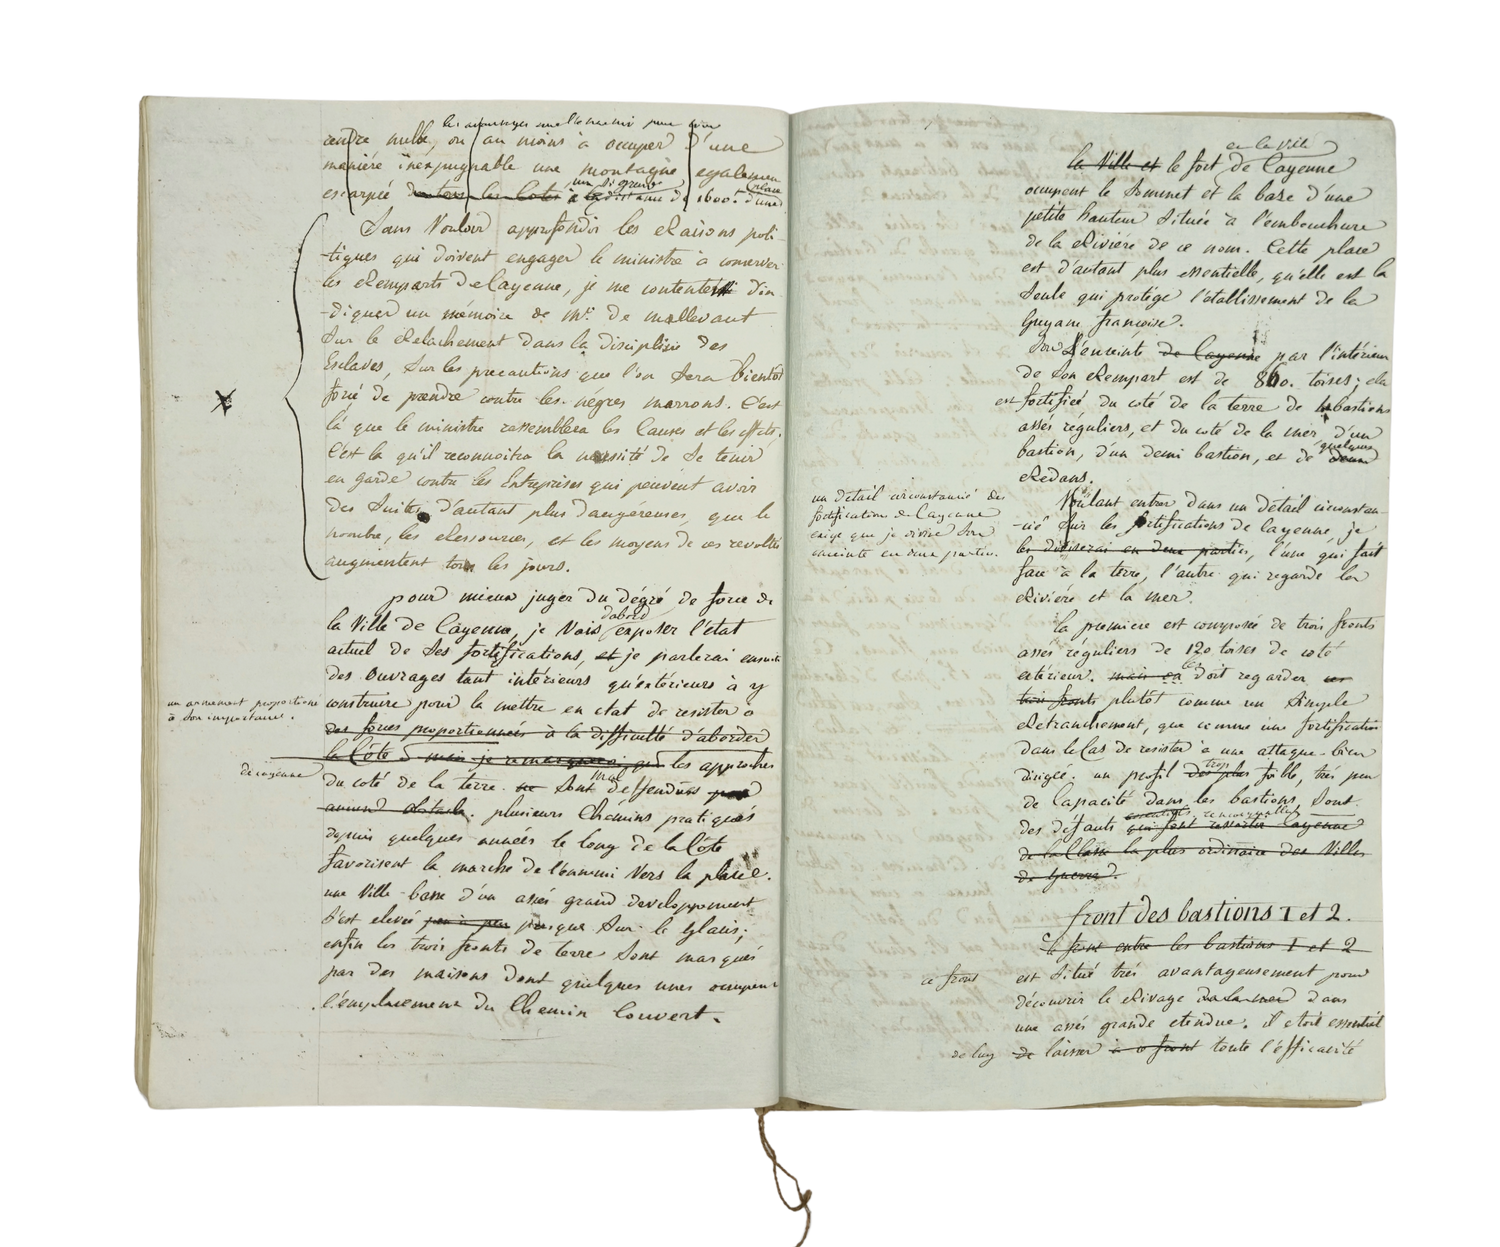 les avantages sur l'ennemi pour
rendre nulle, ou au moins à occuper d'une
maniére inexpugnable une montagne egalement
escarpée dans tous les Cotés à la distance de 1600.t d'une
un si grand
place
Sans Vouloir approfondir les Raisons poli-
-tiques qui doivent engager le ministre à conserver
les Remparts de Cayenne, je me contenterai d'in
-diquer un mémoire de Mr. de mallevaut
Sur le Relachement dans la discipline des
Esclaves, Sur les precautions que l'on Sera bientôt
forcé de prendre contre les négres marrons. C'est
là que le ministre rassemblera les Causes et les effets.
C'est la qu'il reconnoitra la nécessité de Se tenir
en garde contre les Entreprises qui peuvent avoir
des Suites d'autant plus dangereuses, que le
nombre, les Ressources, et les moyens de ces revoltés
augmentent tous les jours.
pour mieux juger du dégré de force de
d'abord
la Ville de Cayenne, je Vais exposer l'état
actuel de Ses fortifications, et je parlerai ensuite
des Ouvrages tant intérieurs qu'extérieurs à y
construire pour la mettre en etat de resister à
un armement proportioné
à Son importance.
des forces proportionnées à la difficulté d'aborder
la Côte mais je remarquerai que les approches
de cayenne
du coté de la terre ne Sont deffendues par
mal
aucun obstacle. plusieurs Chémins pratiqués
depuis quelques années le long de la Côte
favorisent la marche de l'ennemi Vers la place.
une Ville basse d'un assés grand developpement
S'est elevée peu à peu presque Sur le Glacis;
enfin les trois fronts de terre Sont masqués
par des maisons dont quelques unes occupent
l'emplacement du Chemin Couvert.
et la Ville
la Ville et le fort de Cayenne
occupent le Sommet et la baze d'une
petite hauteur Située à l'embouchure
de la Riviére de ce nom. Cette place
est d'autant plus essentielle, qu'elle est la
Seule qui protége l'établissement de la
Guyane francoise.
Son L'enceinte de Cayenne par l'intérieur
de Son Rempart est de 860. toises; ela
est fortifiée du coté de la terre de 4 bastions
assés réguliers, et du coté de la mer d'un
bastion, d'un demi bastion, et de deux
quelques
Redans.
Voulant entrer dans un détail circonstan-
-cié Sur les fortifications de Cayenne, je
les diviserai en deux parties, l'une qui fait
face à la terre, l'autre qui regarde la
Riviére et la mer.
un detail circonstancié des
fortification de Cayenne
exige que je divise Son
enceinte en deux parties.
la premiere est composée de trois fronts
assés réguliers de 120 toises de coté
extérieur. mais on doit regarder ces
trois fronts plutôt comme un Simple
Retranchement, que comme une fortification
dans le Cas de resister à une attaque bien
dirigée. un profil des plus foible, trés peu
trop
de Capacité dans les bastions, Sont
des défauts qui font ressortir Cayenne
essentiels
de la Classe la plus ordinaire des Villes
de Guerre.
front des bastions 1 et 2.
le front entre les bastions 1 et 2
ce front
est Situé trés avantageusement pour
découvrir le Rivage de la mer dans
une assés grande etendue. il etoit essentiel
de luy
de laisser à ce front toute l'efficacité